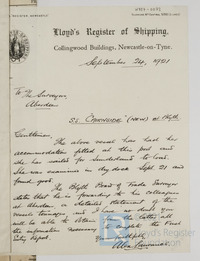 Lloyd's Register of Shipping,
Collingwood Buildings, Newcastle-on-Tyne.
September 24, 1921
To The Surveyor
Aberdeen
S.S. CAIRNSIDE (NEW) at Blyth
Gentlemen,
The above vessel has had her
accommodation fitted in this port and
she has sailed for Sunderland to load.
She was examined in dry dock Sept 21 and
found good.
The Blyth Board of Trade Surveyor
states that he is forwarding to his colleague
at Aberdeen a detailed statement of the
vessel's tonnage and I have no doubt you
will be able to obtain from the latter all
the information necessary to complete the First
Entry Report.